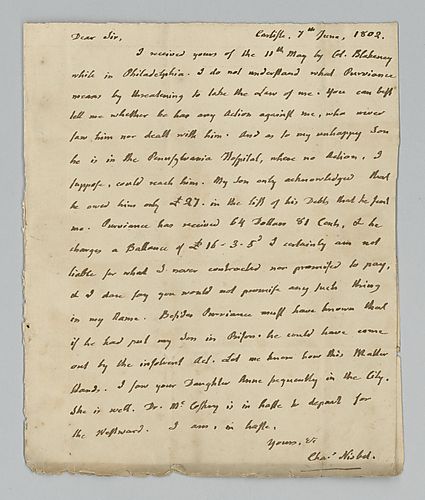 Dear Sir, Carlisle, 7th June, 1802.
I received yours of the 11th May by Col. Blakeney
while in Philadelphia. I do not understand what Purviance
means by threatening to take the Law of me. You can best
tell me whether he has any Action against me, who never
saw him nor dealt with him. And as to my unhappy Son
he is in the Pennsylvania Hospital, where no Action, I
suppose, could reach him. My Son only acknowledged that
he owed him only £27. in the list of his Debts that he sent
me. Purviance has received 64 Dollars 81 Cents, & he
charges a Ballance of £16-3-5d I certainly am not
liable for what I never contracted nor promised to pay,
& I dare say you would not promise any such thing
in my Name. Besides Purviance must have known that
if he had put my Son in Prison, he could have come
out by the insolvent Act. Let me know how this Matter
stands. I saw your Daughter Anne frequently in the City.
She is well. Dr. McCoskry is in haste to depart for
the Westward. I am, in haste,
Yours, &c
Chas Nisbet.